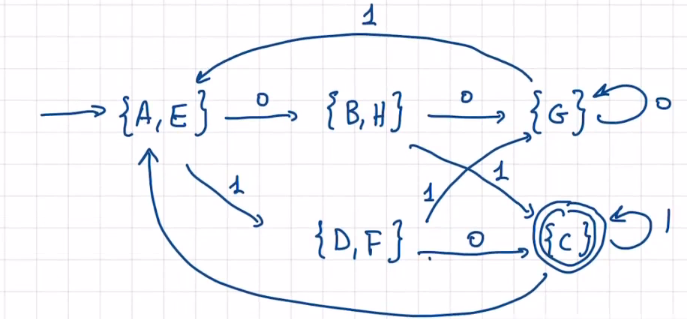 1
{A,E} 0 {B,H} 0 {G} 0
1 1 1
{D,F} 0 {C} 1